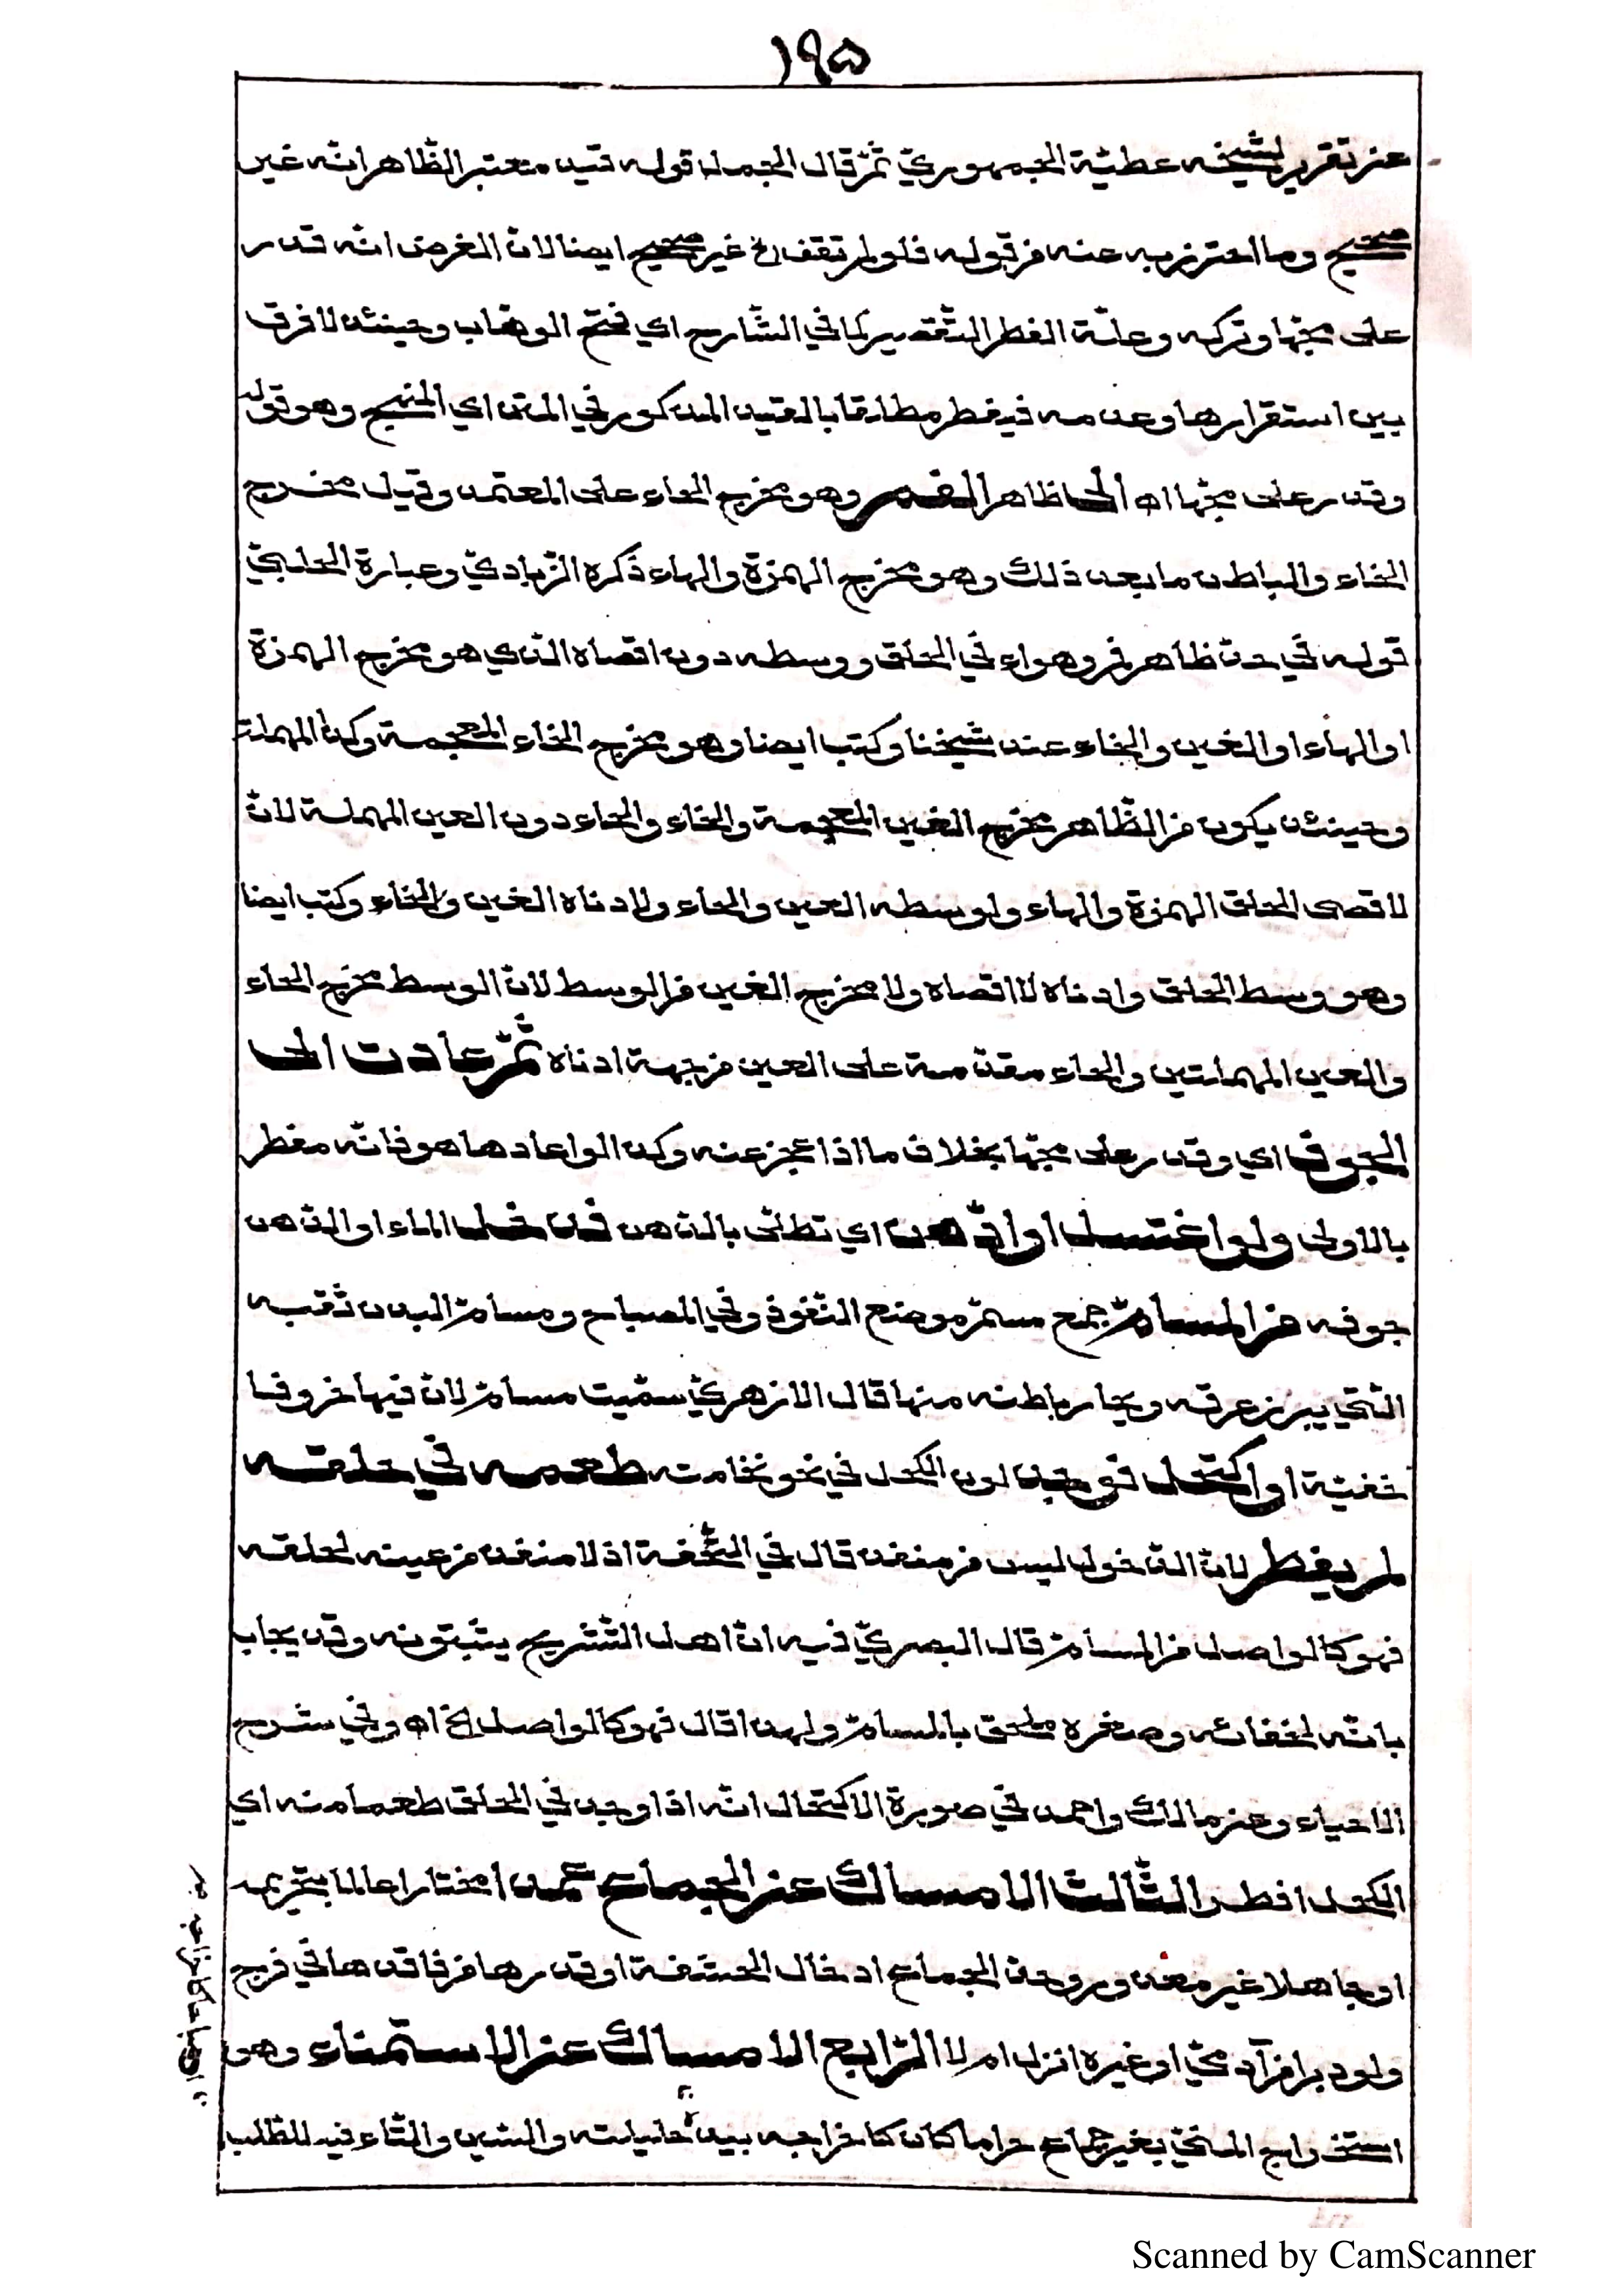 ١٩٥
عن تقرير لشيخه عطيّة الجمهوريّ ثمّ قال الجمل قوله قيد معتبر الظّاهر انّه غير
صحيح وما احترز به عنه من قوله فلو لم تقف الخ غير صحيح ايضا لانّ الغرض انّه قدر
على مجّها وتركه وعلّة الفطر التّقصير كما في الشّارح اي فتح الوهّاب وحينئذ لا فرق
بين استقرارها وعدمه فيفطر مطلقا بالقيد المذكور في المتن اي المنهج وهو قوله
وقدر على مجّها اه الى ظاهر الفم وهو مخرج الحاء على المعتمد وقيل مخرج
الخاء والباطن ما بعد ذلك وهو مخرج الهمزة والهاء ذكره الزّياديّ وعبارة الحلبيّ
قوله في حدّ ظاهر فم وهو اي في الحلق ووسطه دون اقصاه الذي هو مخرج الهمزة
او الهاء او الغين والخاء عند شيخنا وكتب ايضا وهو مخرج الخاء المعجمة وكذا المهملة
وحينئذ يكون من الظّاهر مخرج الغين المعجمة والخاء والحاء دون العين المهملة لانّ
لاقصى الحلق الهمزة والهاء ولوسطه العين والحاء ولادناه الغين والخاء وكتب ايضا
وهو وسط الحلق وادناه لا اقصاه ولا مخرج الغين من الوسط لانّ الوسط مخرج الحاء
والعين المهملتين والحاء مقدّمة على العين من جهة ادناه ثمّ عادت الى
الجوف اي وقدر على مجّها بخلاف ما اذا عجز عنه وكذا لو اعادها هو فانّه مفطر
بالاولى ولو اغتسل او ادّهن اي تطلّى بالدّهن فدخل الماء او الدّهن
جوفه من المسامّ جمع مسمّ موضع النّفوذ وفي المصباح ومسامّ البدن ثقبه
الّتي يبرز عرقه وبخار باطنه منها قال الازهريّ سمّيت مسامّ لانّ فيها خروقا
خفيّة او اكتحل فوجد لون الكحل في نحو نخامته طعمه في حلقه
لم يفطر لانّ الدّخول ليس من منفذ قال في التّحفة اذ لا منفذ من عينه لحلقه
فهو كالواصل من المسامّ قال البصريّ فيه انّ اهل التّشريح يثبتونه وقد يجاب
بانّه لخفائه وصغره ملحق بالمسامّ ولهذا قال فهو كالواصل الخ اه وفي شرح
الاحياء وعن مالك واحمد في صورة الاكتحال انّه اذا وجد في الحلق طعما منه اي
الكحل افطر والثّالث الامساك عن الجماع عمدا مختارا عالما بتحريمه
او جاهلا غير معذور وحدّ الجماع ادخال الحشفة او قدرها من فاقدها في فرج
ولو دبرا من آدميّ او غيره انزل ام لا الرّابع الامساك عن الاستمناء وهو
استخراج المنيّ بغير جماع حراما كان كاخراجه بيد حليلته والسّين والتّاء فيه للطّلب